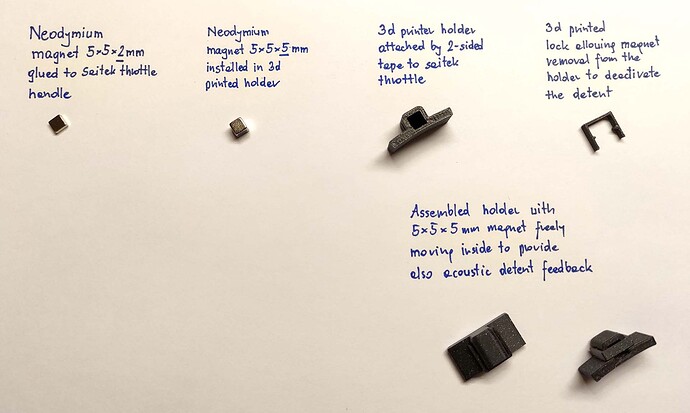 Neodymium
magnet 5×5×2mm
glued to Saitek throttle
handle
Neodymium
magnet 5×5×5 mm
installed in 3d
printed holder
3d printer holder
attached by 2-sided
tape to saitek
throttle
3d printed
lock allowing magnet
removal from the
holder to deactivate
the detent
Assembled holder with
5×5×5 mm magnet freely
moving inside to provide
also acoustic detent feedback